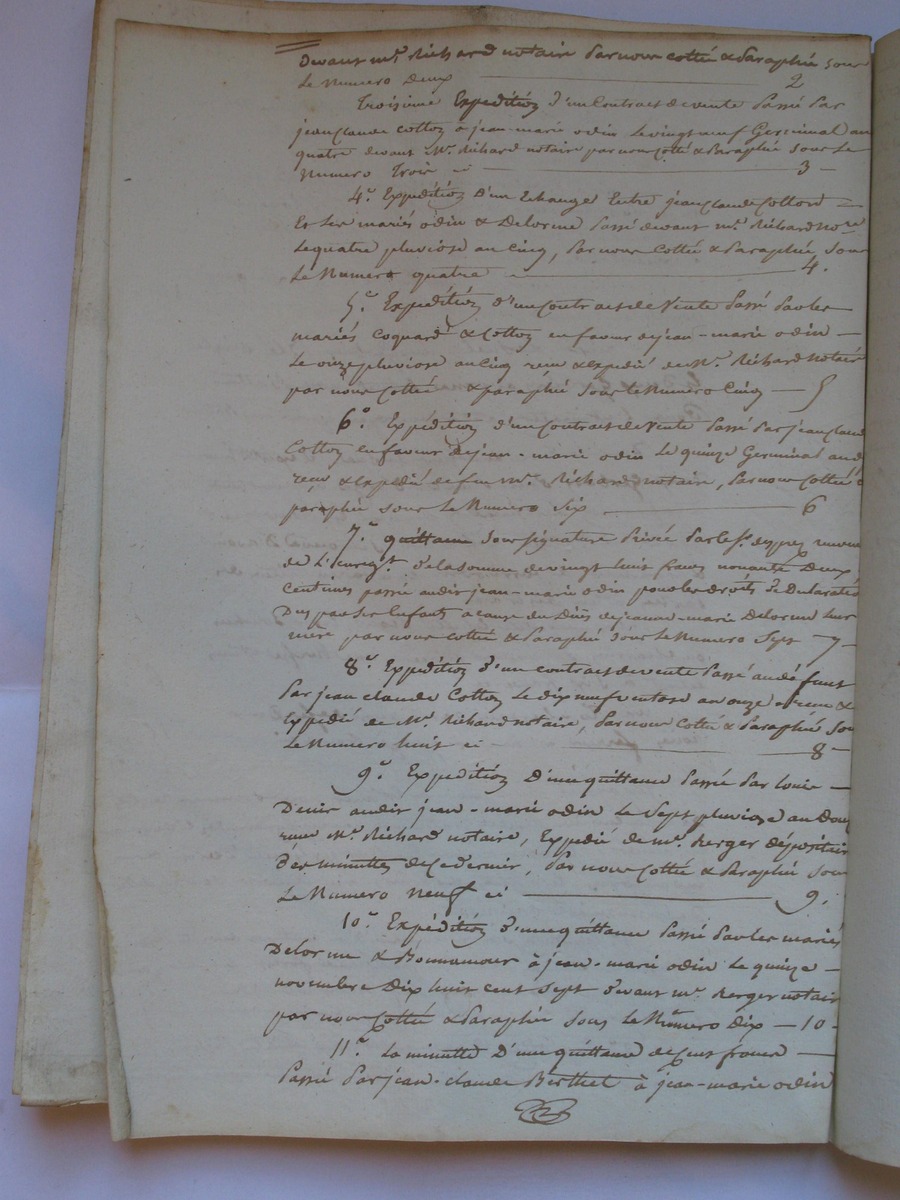 Devant mr. Richard notaire par nous cotté & paraphé sous
Le Numero Deux 2
Troisieme Expedition d'un Contract de vente passé par
jean Claude Cotton à jean-marie odin Le vingt neuf Germinal an
quatre devant Mr. Richard notaire par nous Cotté & Paraphé sous Le
Numero Trois ci 3
4.° Expedition D'un Echange Entre jean Claude Cotton
Et Les mariés odin & Delorme passé devant mr. Richard Nore
Le quatre pluviose an cinq, par nous Cotté & paraphé sous
Le Numero quatre 4.
5.° Expédition d'un Contract de Vente passé par les
mariés Coquard & Cotton en faveur de jean-marie odin
Le onze pluviose an Cinq recu & expedié de Mr. Richard Notaire
par nous Cotté & paraphé sous Le Numero Cinq 5
6.° Expédition d'un Contract de Vente passé par jean Claude
Cotton en faveur de jean-marie odin Le quinze Germinal an
reçu & Expedié de feu mr. Richard notaire, par nous Cotté &
paraphé sous Le Numero Six 6
7.° quittance sous signature privée par le
de L'enregt. de la somme de vingt huit francs nonante Deux
Centimes passé audit jean-marie odin pour les droits de Declaration
Dus par ses Enfants a cause du Décès de jeanne-marie Delorme leur
mère par nous cotté & paraphé sous Le Numero Sept 7
8.° Expédition d'un contract de vente passé au défunt
par jean claude Cotton Le dix neuf ventose an onze reçu &
Expedié de Mr. Richard notaire, par nous Cotté & paraphé sous
Le Numero huit ci 8
9.° Expedition D'une quittance passé par Louis
Denis audit jean-marie odin Le Sept pluviose an Douze
recu Mr. Richard notaire, Expedié de mr. Kerger dépositaire
des minuttes de Ce dernier, par nous Cotté & paraphé sous
Le Numero Neuf ci 9.
10.° Expédition d'une quittance passé par les mariés
Delorme & Bonnamour à jean-marie odin Le quinze
novembre Dix huit cent sept devant mr. Kerger notaire
par nous Cotté & Paraphé sous Le Numero Dix 10
11.° La minutte D'une quittance de Cent francs
passé par jean-claude Berthet à jean-marie odin